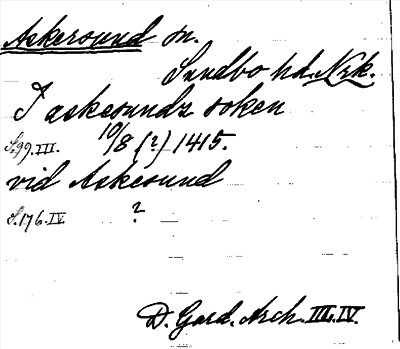 Askersund sn.
Sundbo hd. Nrk.
I askesundz soken
S.99.III. 10/8 (?) 1415.
vid Askesund
S.176.IV ?
D. Gard. Arch. III. IV.